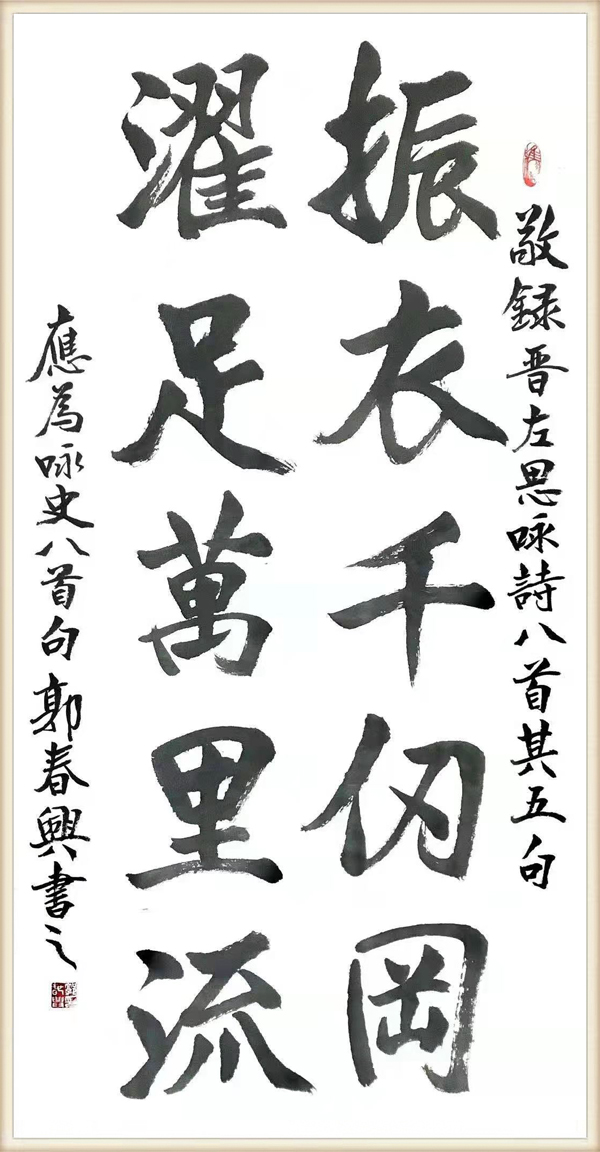 敬録晋左思咏詩八首其五句
振衣千仞岡
濯足萬里流
應為咏史八首句郭春興書之